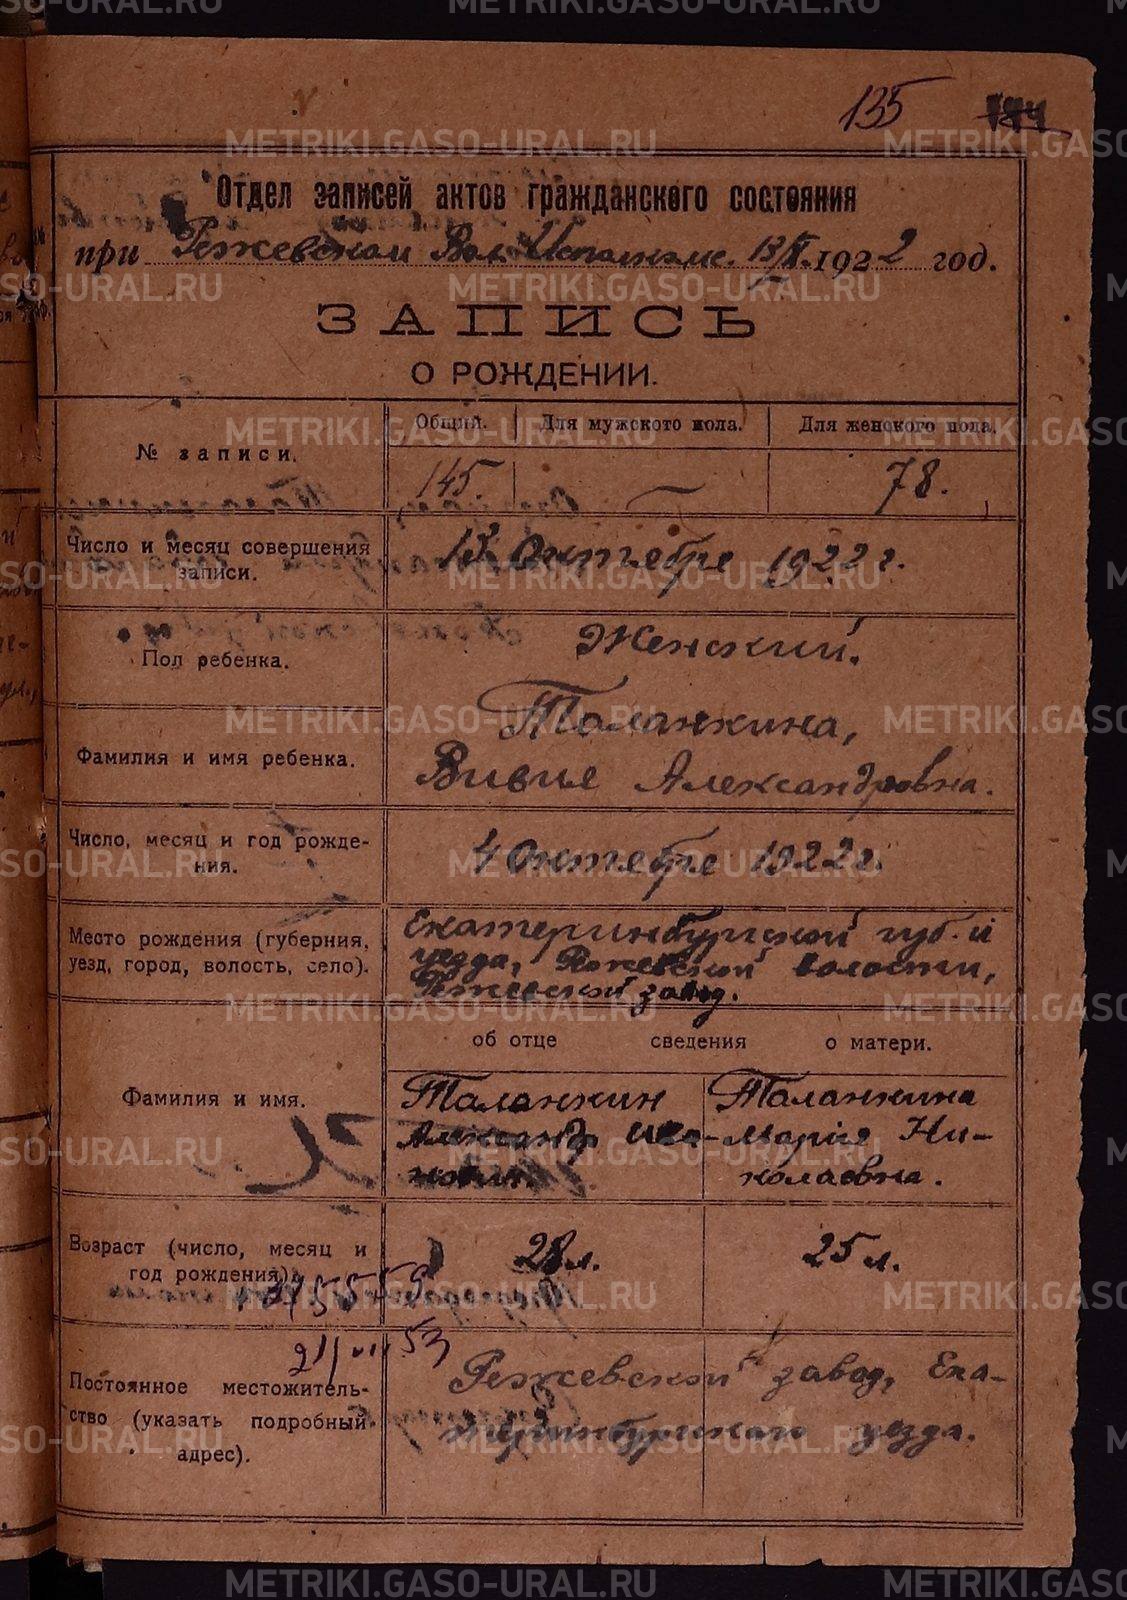 135 144
Отдел записей актов гражданского состояния
при Режевском Вол. Исполкоме. 13/X 1922 год.
ЗАПИСЬ
О РОЖДЕНИИ.
№ записи.
Общий. Для мужского пола. Для женского пола.
145. — 78.
Число и месяц совершения записи.
13 Октября 1922 г.
Пол ребенка.
Женский.
Фамилия и имя ребенка.
Таланкина,
Вивия Александровна.
Число, месяц и год рожде-
ния.
4 Октября 1922 г.
Место рождения (губерния,
уезд, город, волость, село).
Екатеринбургской губ. и
уезда, Режевской волости,
Режевской завод.
об отце сведения о матери.
Фамилия и имя.
Таланкин
Александр
Таланкина
Мария Ни-
колаевна.
Возраст (число, месяц и
год рождения).
28 л. 25 л.
Постоянное местожитель-
ство (указать подробный
адрес).
Режевской завод, Ека-
теринбургского уезда.
METRIKI.GASO-URAL.RU